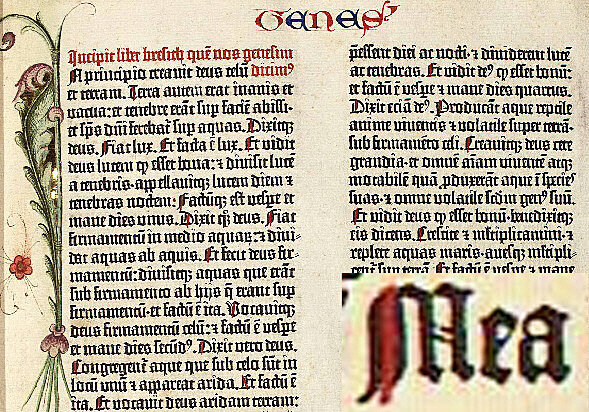 Genes⁹
Incipit liber bresith quē nos genesim
A principio creavit deus celū dicim⁹
et terram. Terra autem erat inanis et
vacua: et tenebre erāt sup faciē abissi·
et spūs dñi ferebať sup aquas. Dixitqꝫ
deus. Fiat lux. Et facta ē lux. Et vidit
deus lucem qꝫ esset bona: ⁊ divisit lucē
a tenebris· appellavitqꝫ lucem diem ⁊
tenebras noctem: Factūqꝫ est vespe et
mane dies unus. Dixit qꝫ deus. Fiat
firmamentū in medio aquaꝝ: ⁊ divi-
dat aquas ab aquis. Et fecit deus fir-
mamentū: divisitqꝫ aquas que erāt
sub firmamento ab hijs q̄ erant sup
firmamentū: et factū ē ita. Vocavitqꝫ
deus firmamentū celū: ⁊ factū ē vespe
et mane dies secūd⁹. Dixit vero deus.
Congregent aque que sub celo sūt in
locū unū ⁊ appareat arida. Et factū ē
ita. Et vocavit deus aridam terram:
p̄essent diei ac nocti: ⁊ dividerent lucē
ac tenebras. Et vidit de⁹ qꝫ esset bonū:
et factū ē vespe ⁊ mane dies quartus.
Dixit eciā de⁹. Producāt aque reptile
anime viventis ⁊ volatile super terrā:
sub firmamēto celi. Creavitqꝫ deus cete
grandia· et omnē aīam viventē atqꝫ
motabilē quā pduxerāt aque ī species
suas· ⁊ omne volatile scdm gen⁹ suū.
Et vidit deus qꝫ esset bonū· benedixitqꝫ
eis dicens. Crescite ⁊ multiplicamini· ⁊
replete aquas maris· avesqꝫ multipli-
cent sup terrā. Et factū ē vespe ⁊ mane
Mea